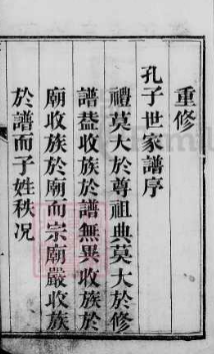 重修
孔子世家譜序
禮莫大於尊祖典莫大於修
譜葢收族於譜無異收族於
廟收族於廟而宗廟嚴收族
於譜而子姓秩況